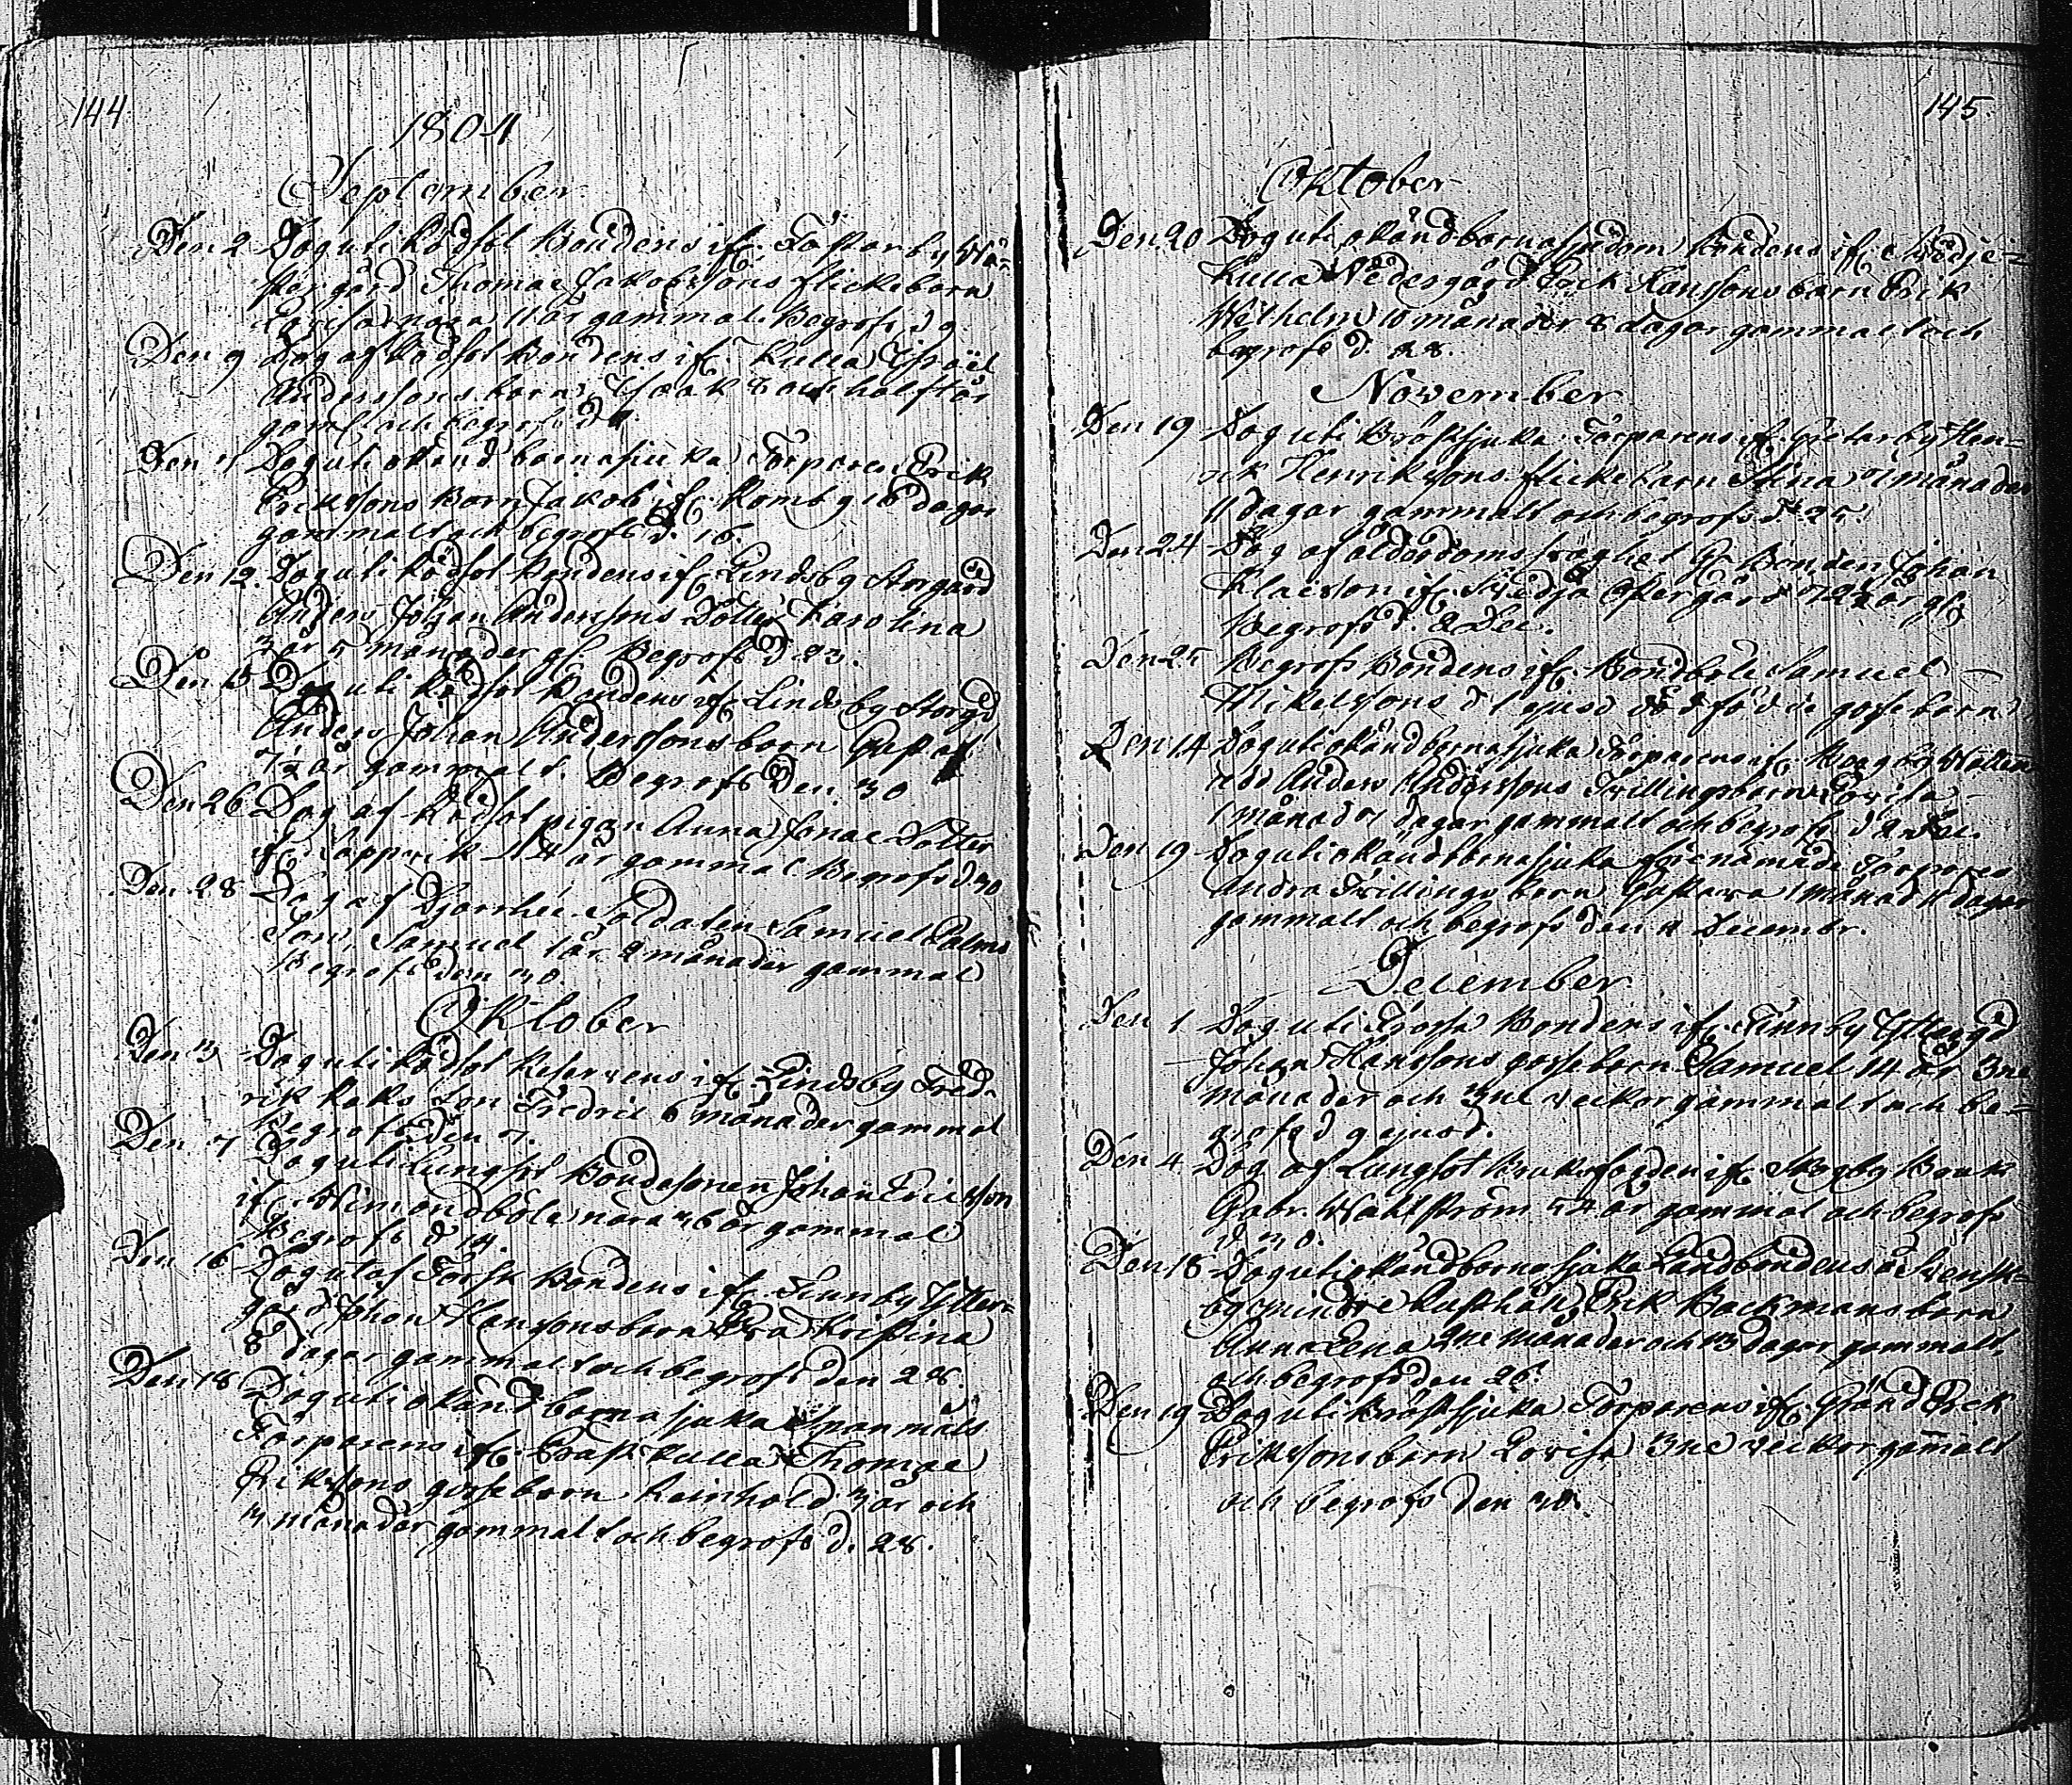 144
1804
September
Den 2 Dog uti Rödsot Bondens ifr. Täſtarby Wä-
stergård Thomae Jakobssons flickebarn
Lovisa nära 11 år gammal. Begrofs d 9
Den 9 Dog af Rödsot Bondens ifr. Kulla Israël
Anderssons barn Isaak 8 och halft år
gaml och begrofs d
Den 11 Dog uti okänd barnasjuka Torparen Erik
Erikssons Barn Jakob ifr. Romby 16 dagar
gammalt och begrofs d. 16.
Den 12. Dog uti Rödsot Bondens ifr. Lindsby Storgård
Anders Johan Anderssons Dotter Karolina
3 år 5 månader gl Begrofs d 23.
Den 15 Dog uti Rödsot Bondens ifr. Lindsby Storgd
Anders Johan Anderssons barn Gustaf
7½ år gammalt. Begrofs Den 30
Den 26 Dog af Rödsot pigan Anna Jonae Dotter
ifr. Lappvik 44 år gammal Begrofs d 30
Den 28 Dog af Soldaten Samuel Palms
Son Samuel 1 år 2 månader gammal
Begrofs den 30
Oktober
Den 3 Dog uti Rödsot Reservens ifr. Lindsby Fred-
rik Raks Son Fredric 6 månader gammal
Begrofs den 7.
Den 7 Dog uti Lungsot Bondesonen Johan Ericsson
ifr. Simondböle nära 36 år gammal
Begrofs d 14.
Den 16 Dog utaf Torsk Bondens ifr. Finnby Ytter-
gård Johan Hanssons barn Eva Kristina
8 dagar gammalt och begrofs den 28.
Den 18 Dog uti okänd barnasjuka Spanmåls
Torparens ifr. Prästkulla Thomae
Erikssons gossebarn Reinhold 3 år och
3 månader gammalt och begrofs d. 28.
145
Oktober
Den 20 Dog uti okänd barnasjukdom Bondens ifr.
Kulla Nedergård Erik Hanssons barn Erik
Wilhelm 10 månader 8 dagar gammalt och
begrofs d. 28.
November
Den 19 Dog uti Bröstsjuka Torparens ifr. Gretarby Hen-
rik Henrikssons flickebarn Stina 7 månader
11 dagar gammalt och begrofs d. 25.
Den 24 Dog af ålderdomsswaghet Gl. Bonden Johan
Klaesson ifr. Swedja Östergård 72½ år gl
Begrofs d. 2 Dec.
Den 25 Begrofs Bondens ifr. Bondböle Samuel
Mikelssons d 1 ejusd dödfödde gossebarn
Den 14 Dog uti okänd barnasjuka Torparens ifr. Skogby
Anders Anderssons Trillingsbarn Lovisa
1 månad 7 dagar gammalt och begrofs d 2 Dec.
Den 19 Dog uti okänd barnasjuka förenämnde Torpares
Andra Trillings barn Gustava 1 månad 11 dagar
gammalt och begrofs den 2 Decembr.
December
Den 1 Dog uti Torsk Bondens ifr. Finnby Yttergd
Johan Hanssons gossebarn Samuel 14 år 3ne
månader och 3ne veckor gammalt och be-
grofs d 9 ejusd.
Den 4 Dog af Lungsot Bruksfogden ifr. Skogby Bruk
Gabr. Wahlström 54 år gammal och begrofs
d 30.
Den 18 Dog uti okänd barnasjuka Landbondens å Svensk-
by mindre Rusthåll, Erik Backmans barn
Anna Lena 2ne månader och 13 dagar gammalt,
och begrofs den 26.
Den 19 Dog uti Bröstsjuka Torparens ifr. Gränd Erik
Erikssons barn Lovisa 3ne veckor gamalt
och begrofs den 30.